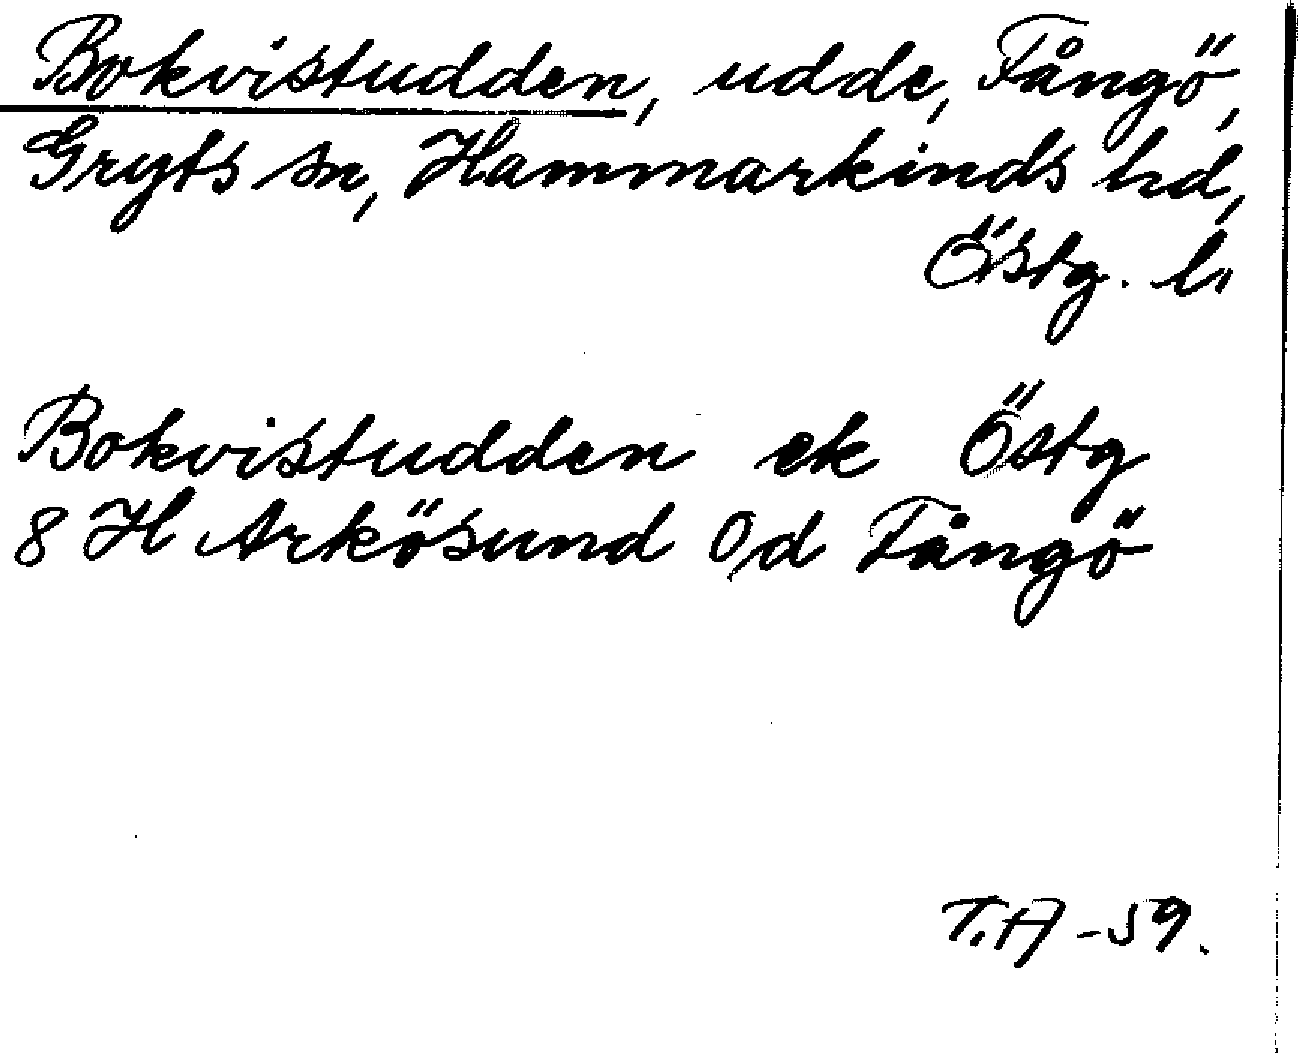 Bokvistudden, udde, Fångö,
Gryts sn, Hammarkinds hd,
Östg. l.
Bokvistudden ek Östg
8 H Arkösund Od Fångö
T.A -59.